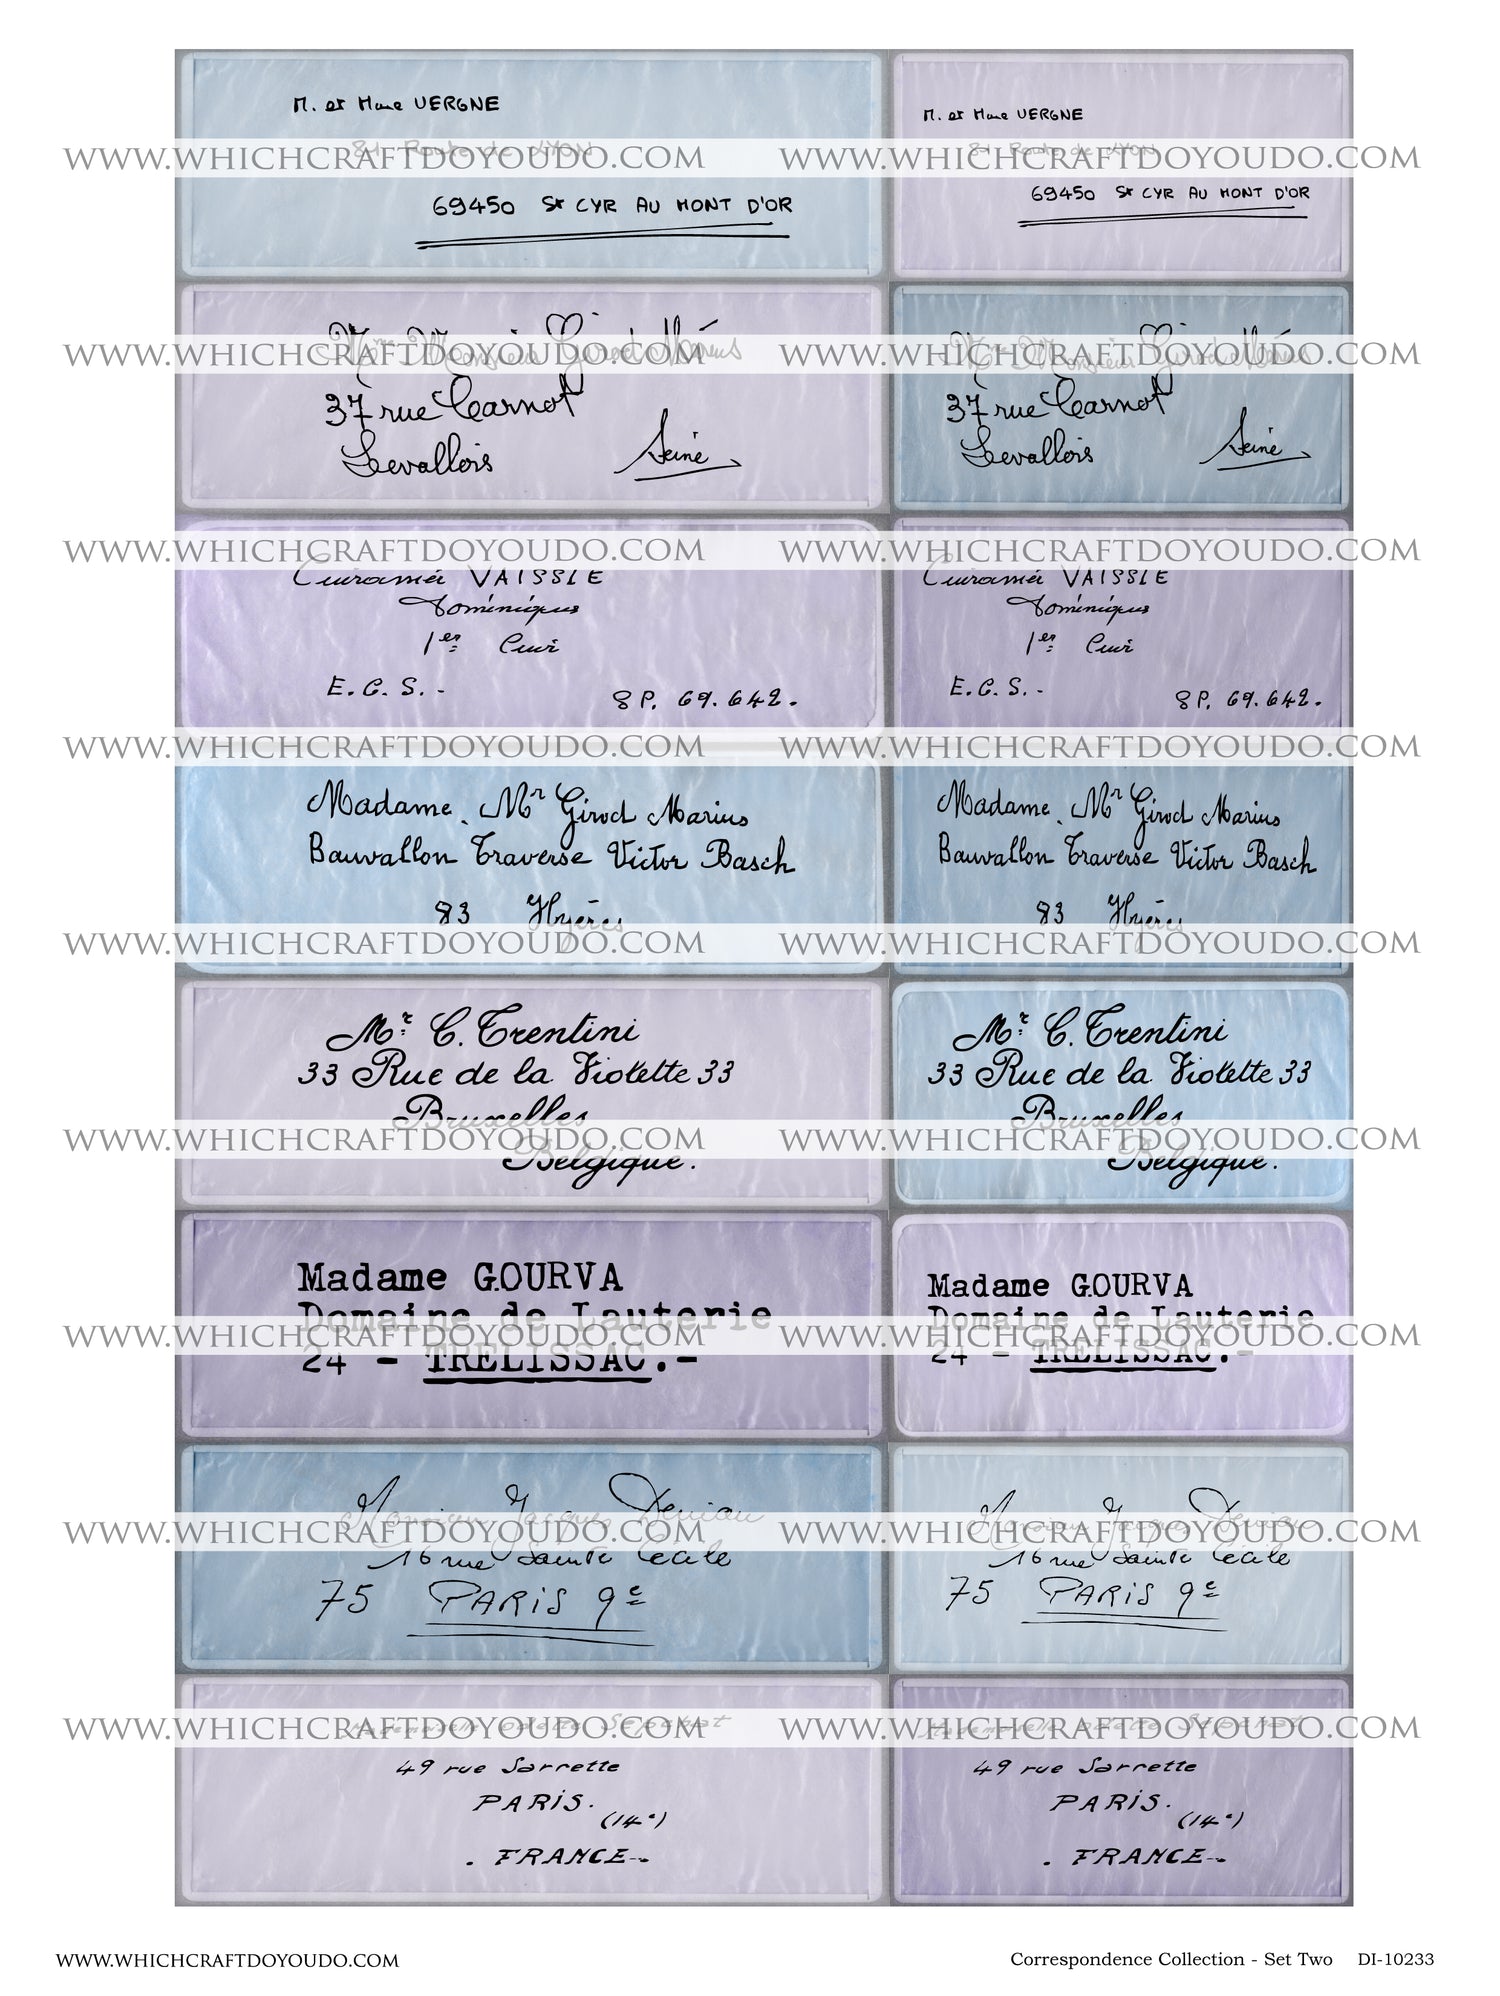 M. et Mme VERGNE
M. et Mme VERGNE
81 Route de LYON
81 Route de LYON
WWW.WHICHCRAFTDOYOUDO.COM
WWW.WHICHCRAFTDOYOUDO.COM
69450 St CYR AU MONT D'OR
69450 St CYR AU MONT D'OR
Mme Monsieur Girod Marius
Mme Monsieur Girod Marius
WWW.WHICHCRAFTDOYOUDO.COM
WWW.WHICHCRAFTDOYOUDO.COM
37 rue Carnot
37 rue Carnot
Levallois Seine
Levallois Seine
WWW.WHICHCRAFTDOYOUDO.COM
WWW.WHICHCRAFTDOYOUDO.COM
VAISSIE
VAISSIE
Dominique
Dominique
1er
1er
E.C.S.-
8P. 69.642.
E.C.S.-
8P. 69.642.
WWW.WHICHCRAFTDOYOUDO.COM
WWW.WHICHCRAFTDOYOUDO.COM
Madame. Mr Girod Marius
Madame. Mr Girod Marius
Bauvallon Traverse Victor Basch
Bauvallon Traverse Victor Basch
83 Hyères
83 Hyères
WWW.WHICHCRAFTDOYOUDO.COM
WWW.WHICHCRAFTDOYOUDO.COM
Mr C. Trentini
Mr C. Trentini
33 Rue de la Violette 33
33 Rue de la Violette 33
Bruxelles
Bruxelles
WWW.WHICHCRAFTDOYOUDO.COM
WWW.WHICHCRAFTDOYOUDO.COM
Belgique.
Belgique.
Madame GOURVA
Madame GOURVA
Domaine de Lauterie
Domaine de Lauterie
WWW.WHICHCRAFTDOYOUDO.COM
WWW.WHICHCRAFTDOYOUDO.COM
24 - TRELISSAC.-
24 - TRELISSAC.-
Monsieur Jacques
Monsieur Jacques
WWW.WHICHCRAFTDOYOUDO.COM
WWW.WHICHCRAFTDOYOUDO.COM
16 rue Sainte Cécile
16 rue Sainte Cécile
75 PARIS 9e
75 PARIS 9e
Mademoiselle Odette
Mademoiselle Odette
WWW.WHICHCRAFTDOYOUDO.COM
WWW.WHICHCRAFTDOYOUDO.COM
49 rue Sarrette
49 rue Sarrette
PARIS.
PARIS.
(14e)
(14e)
. FRANCE-.
. FRANCE-.
WWW.WHICHCRAFTDOYOUDO.COM
Correspondence Collection - Set Two DI-10233